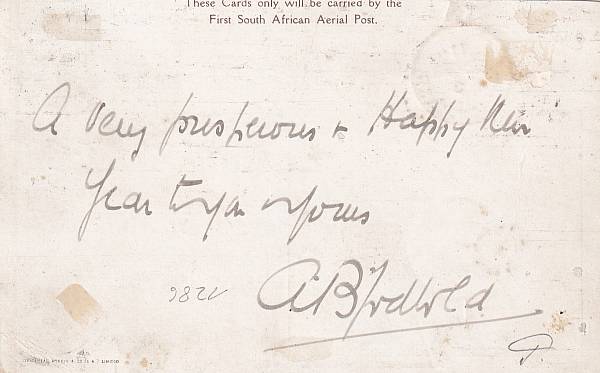 These Cards only will be carried by the
First South African Aerial Post.
A very prosperous & Happy New
Year to you & yours
A.B. Godbold